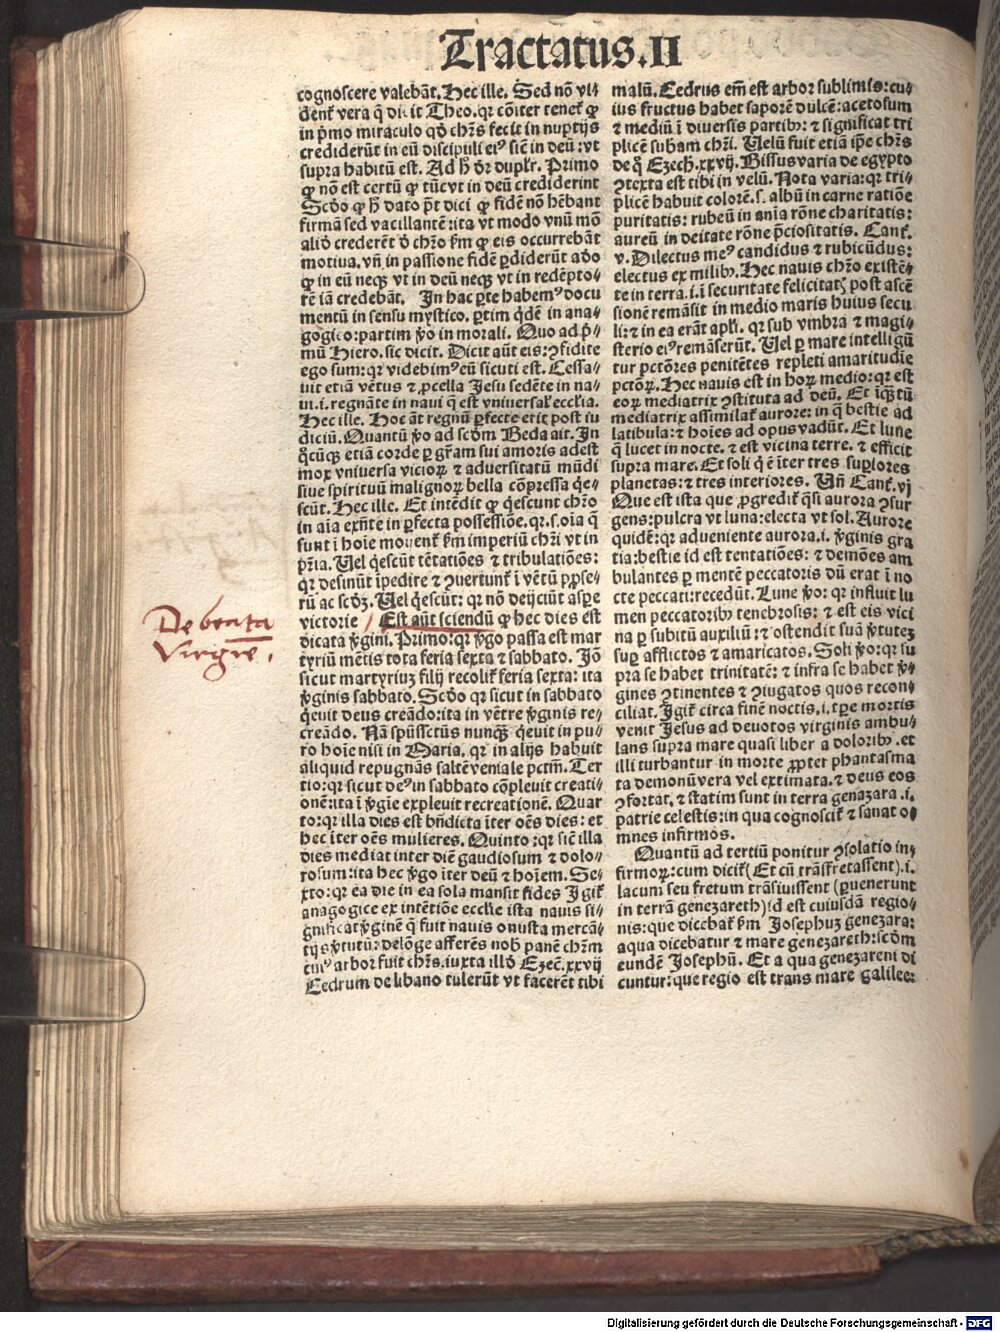 Tractatus.II
cognoscere valebāt. Hec ille. Sed nō vi⸗
dent᷑ vera q̄ dicit Theo. qꝛ cōiter tenet᷑ ꝙ
in p̄mo miraculo qđ chr̄s fecit in nuptijs
crediderūt in eū discipuli eiꝰ sic̄ in deū: vt
supra habitū est. Ad h̄ dꝛ duplꝛ. Primo
ꝙ nō est certū ꝙ tūc vt in deū crediderint
Scđo ꝙ h̄ dato p̄t dici ꝙ fidē nō hēbant
firmā sed vacillantē: ita vt modo vnū mō
aliđ crederēt đ chr̄o ẜm ꝙ eis occurrebāt
motiua. vn̄ in passione fidē ꝑdiderūt ađo
ꝙ in eū neqꝫ vt in deū neqꝫ vt in redēpto⸗
rē iā credebāt. In hac ꝑte habemꝰ docu
mentū in sensu mystico. ꝑtim qͥdē in ana⸗
gogico: partim ꝟo in morali. Quo ad p̄⸗
mū Hiero. sic dicit. Dicit aūt eis: ꝯfidite
ego sum: qꝛ videbimꝰ eū sicuti est. Cessa⸗
uit etiā vētus ⁊ ꝓcella Jesu sedēte in na⸗
ui. i. regnāte in naui q̄ est vniuersal̓ eccl̓ia.
Hec ille. Hoc āt regnū ꝑfecte erit post iu
diciū. Quantū ꝟo ad scđm Beda ait. In
qͦcūqꝫ etiā corde ꝑ gr̄am sui amoris adest
mox vniuersa vicioꝝ ⁊ aduersitatū mūdi
siue spirituū malignoꝝ bella cōpressa q̇e⸗
scūt. Hec ille. Et intēdit ꝙ q̇escunt chr̄o
in aīa exn̄te in ꝑfecta possessiōe. qꝛ. s. oīa q̄
sunt ī hoīe mouent᷑ ẜm imperiū chr̄i vt in
pr̄ia. Uel q̇escūt tētatiōes ⁊ tribulatiōes:
qꝛ desinūt īpedire ⁊ ꝯuertunt᷑ ī vētū ꝓspe⸗
rū ac scđꝫ. Uel q̇escūt: qꝛ nō deijciūt aspe
victorie / Est aūt sciendū ꝙ hec dies est
dicata ꝟgini. Primo: qꝛ ꝟgo passa est mar
tyriū mētis tota feria sexta ⁊ sabbato. Jō
sicut martyriuꝫ filij recolit᷑ feria sexta: ita
ꝟginis sabbato. Scđo qꝛ sicut in sabbato
q̇euit deus creādo: ita in vētre ꝟginis re⸗
creādo. Nā spūssctūs nunqꝫ q̇euit in pu⸗
ro hoīe nisi in Maria. qꝛ in alijs habuit
aliquid repugnās saltē veniale pctm̄. Ter
tio: qꝛ sicut deꝰ in sabbato cōpleuit creati⸗
onē: ita ī ꝟgīe expleuit recreationē. Quar
to: qꝛ illa dies est bn̄dicta īter oēs dies: et
hec īter oēs mulieres. Quinto: qꝛ sic̄ illa
dies mediat inter diē gaudiosum ⁊ dolo⸗
rosum: ita hec ꝟgo īter deū ⁊ hoīem. Se⸗
xto: qꝛ ea die in ea sola mansit fides Jgit᷑
anagogice ex intētiōe eccl̓ie ista nauis si⸗
gnificat ꝟginē q̄ fuit nauis onusta mercā⸗
tijs ꝟtutū: delōge afferēs nob̓ panē chr̄m
cuiꝰ arbor fuit chr̄s. iuxta illđ Ezec̄. xxvij
Cedrum de libano tulerūt vt facerēt tibi
malū. Cedrus em̄ est arbor sublimis: cu⸗
ius fructus habet saporē dulcē: acetosum
⁊ mediū ī diuersis partibꝰ: ⁊ significat tri
plicē subam̄ chr̄i. Uelū fuit etiā ip̄e chr̄s
de q̊ Ezech. xxvij. Bissus varia de egypto
ꝯtexta est tibi in velū. Nota varia: qꝛ tri⸗
plicē habuit colorē. s. albū in carne ratiōe
puritatis: rubeū in anīa rōne charitatis:
aureū in deitate rōne p̄ciositatis. Cant᷑.
v. Dilectus meꝰ candidus ⁊ rubicūdus:
electus ex milibꝰ. Hec nauis chr̄o existē⸗
te in terra. i. ī securitate felicitatꝭ post ascē
sionē remāsit in medio maris huius secu
li: ⁊ in ea erāt apl̓i. qꝛ sub vmbra ⁊ magi⸗
sterio eiꝰ remāserūt. Uel ꝑ mare intelligū
tur pctōres penitētes repleti amaritudīe
pctōꝝ. Hec nauis est in hoꝝ medio: qꝛ est
eoꝝ mediatrix ꝯstituta ad deū. Et īqꝫtū
mediatrix assimilat᷑ aurore: in q̄ bestie ad
latibula: ⁊ hoīes ad opus vadūt. Et lune
q̄ lucet in nocte. ⁊ est vicina terre. ⁊ efficit
supra mare. Et soli q̇ ē īter tres suꝑiores
planetas: ⁊ tres inferiores. Un̄ Cant᷑. vj
Que est ista que ꝓgredit᷑ qͣsi aurora ꝯsur
gens: pulcra vt luna: electa vt sol. Aurore
quidē: qꝛ adueniente aurora. i. ꝟginis gra
tia: bestie id est tentatiōes: ⁊ demōes am
bulantes ꝑ mentē peccatoris dū erat ī no
cte peccati: recedūt. Lune ꝟo: qꝛ influit lu
men peccatoribꝰ tenebrosis: ⁊ est eis vici
na ꝑ subitū auxiliū: ⁊ ostendit suā ꝟtuteꝫ
suꝑ afflictos ⁊ amaricatos. Soli ꝟo: qꝛ su
pra se habet trinitatē: ⁊ infra se habet ꝟ⸗
gines ꝯtinentes ⁊ ꝯiugatos quos recon⸗
ciliat. Jgit᷑ circa finē noctis. i. tp̄e mortis
venit Jesus ad deuotos virginis ambu⸗
lans supra mare quasi liber a doloribꝰ. et
illi turbantur in morte ꝓpter phantasma
ta demonū vera vel extimata. ⁊ deus eos
ꝯfortat. ⁊ statim sunt in terra genazara .i.
patrie celestis: in qua cognoscit᷑ ⁊ sanat o⸗
mnes infirmos.
Quantū ad tertiū ponitur ꝯsolatio in⸗
firmoꝝ: cum dicit᷑ (Et cū trāsfretassent). i.
lacum seu fretum trāsiuissent (ꝑuenerunt
in terrā genezareth) id est cuiusdā regio⸗
nis: que dicebat᷑ ẜm Josephuꝫ genezara:
aqua dicebatur ⁊ mare genezareth: scđm
eundē Josephū. Et a qua genezareni di
cuntur: que regio est trans mare galilee:
De beata
Virgīe.
Digitalisierung gefördert durch die Deutsche Forschungsgemeinschaft - DFG